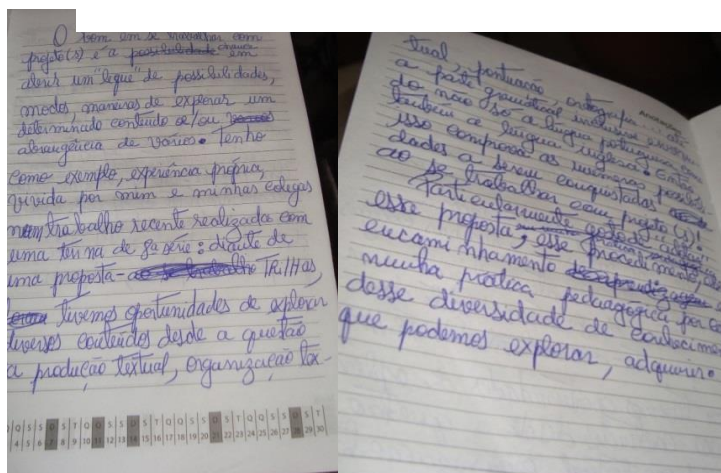 O bom em se trabalhar com
projeto(s) é a chance em
abrir um "leque" de possibilidades,
modos, maneiras de explorar um
determinado conteúdo e/ou
abrangência de vários. Tenho
como exemplo, experiência própria,
vivida por mim e minhas colegas
num trabalho recente realizada com
uma turma de 8ª série: diante de
uma proposta - TRILHAS,
tivemos oportunidades de explorar
diversos conteúdos desde a questão
a produção textual, organização tex-
tual, pontuação, ortografia,
a parte gramatical,
do não só a língua portuguesa, como
também a língua inglesa. Então,
isso comprova as inúmeras possibili-
dades a serem conquistadas
ao se trabalhar com projeto(s)!
Particularmente
esse proposta, esse procedimento,
encaminhamento
minha prática pedagógica por
desse diversidade de conhecimen
que podemos explorar, adquirir.
Q S S D S T Q Q S S D S T Q Q S S D S T Q Q S S D S T
4 5 6 7 8 9 10 11 12 13 14 15 16 17 18 19 20 21 22 23 24 25 26 27 28 29 30